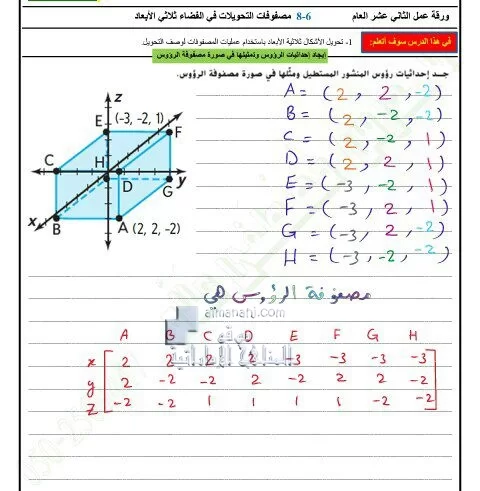 ورقة عمل الثاني عشر العام 8-6 مصفوفات التحويلات في الفضاء ثلاثي الأبعاد
في هذا الدرس سوف أتعلم: 1- تحويل الأشكال ثلاثية الأبعاد باستخدام عمليات المصفوفات لوصف التحويل.
إيجاد إحداثيات الرؤوس وتمثيلها في صورة مصفوفة الرؤوس
جد إحداثيات رؤوس المنشور المستطيل ومثلها في صورة مصفوفة الرؤوس.
A = (2, 2, -2)
B = (2, -2, -2)
C = (2, -2, 1)
D = (2, 2, 1)
E = (-3, -2, 1)
F = (-3, 2, 1)
G = (-3, 2, -2)
H = (-3, -2, -2)
z
E (-3, -2, 1) F
C H D y
G
x
B A (2, 2, -2)
مصفوفة الرؤوس هي
almanahj.com
موقع
المناهج الإماراتية
A B C D E F G H
x 2 2 2 2 -3 -3 -3 -3
y 2 -2 -2 2 -2 2 2 -2
z -2 -2 1 1 1 1 -2 -2